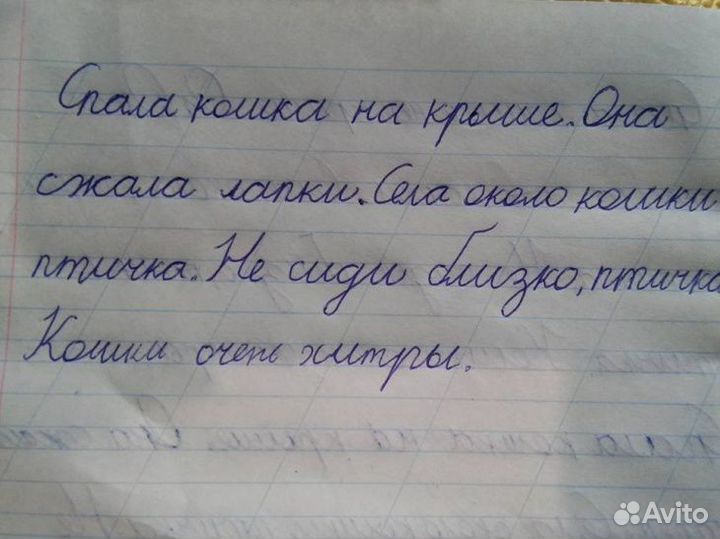 Спала кошка на крыше. Она
сжала лапки. Села около кошки
птичка. Не сиди близко, птичка
Кошки очень хитры.
Avito